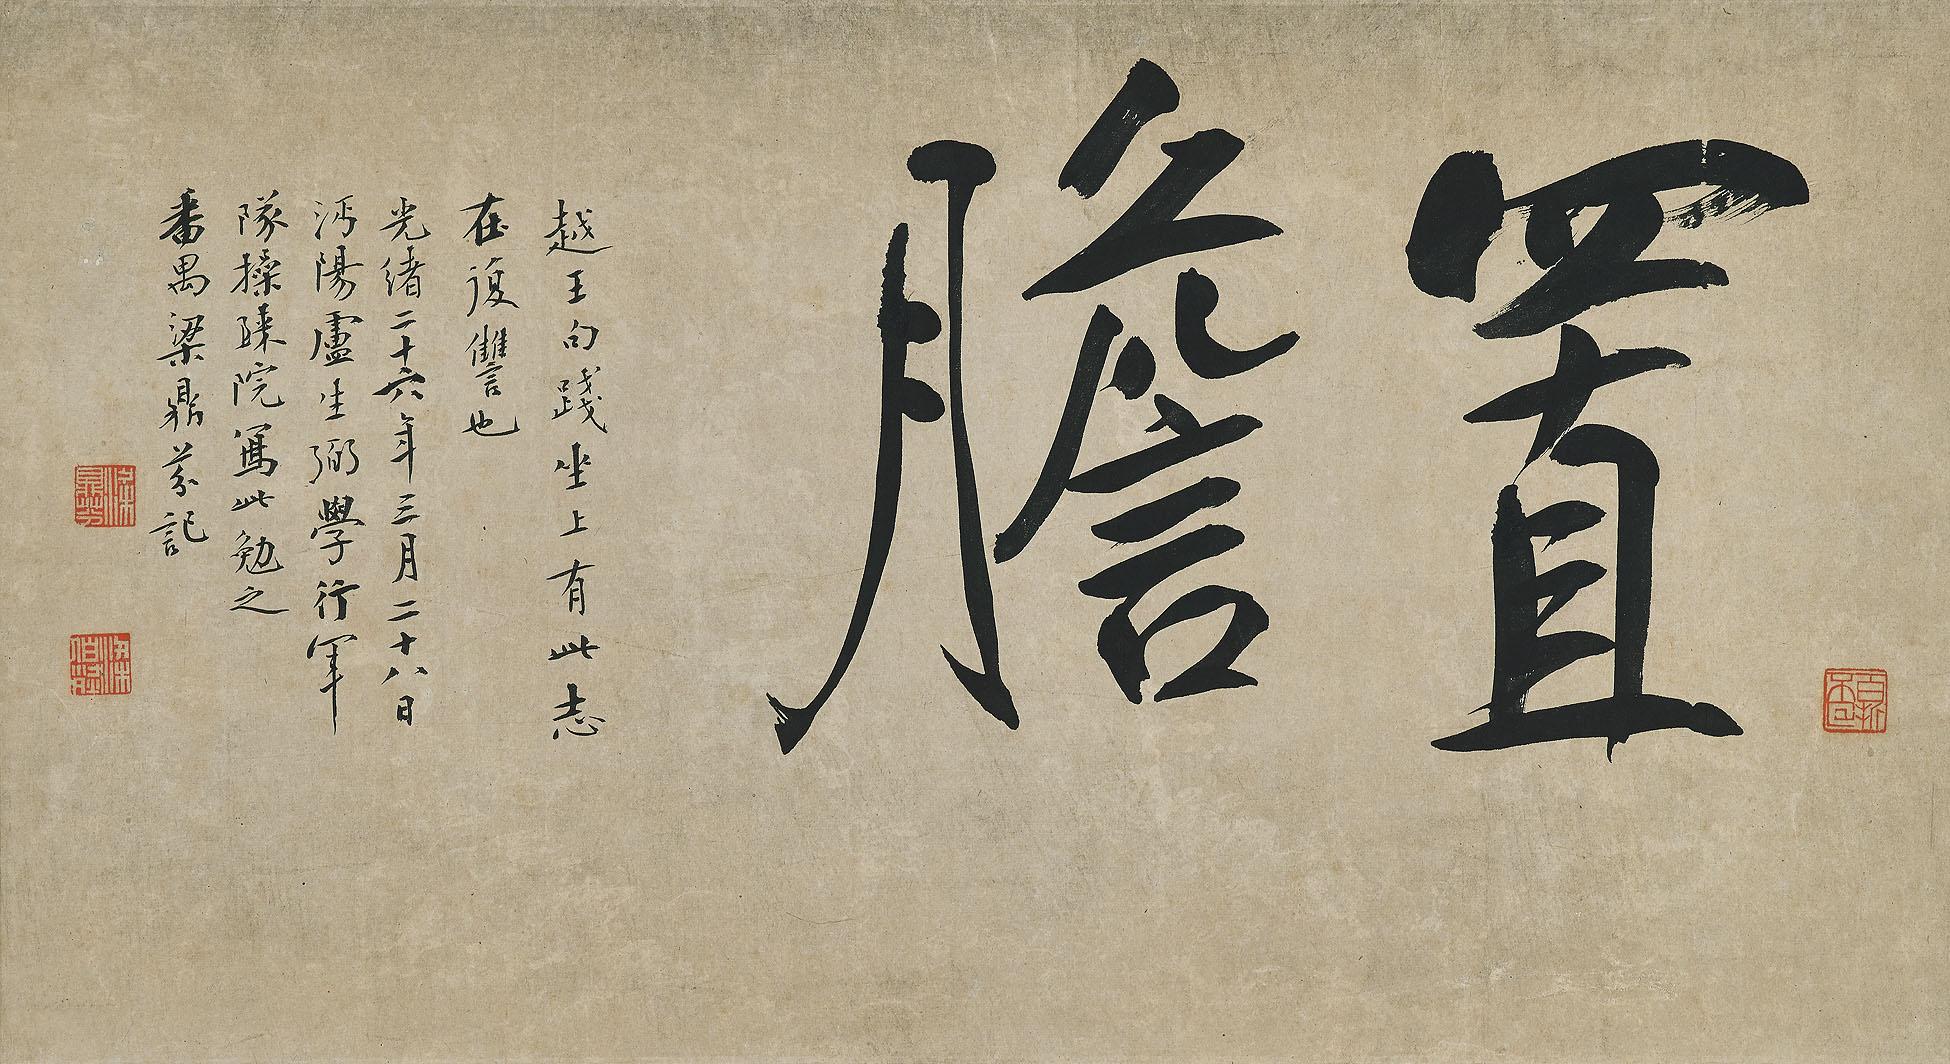 置膽
越王句踐坐上有此志
在復讐也
光緒二十六年三月二十八日
沔陽盧生弼學行軍
隊操隸院寫此勉之
番禺梁鼎芬記